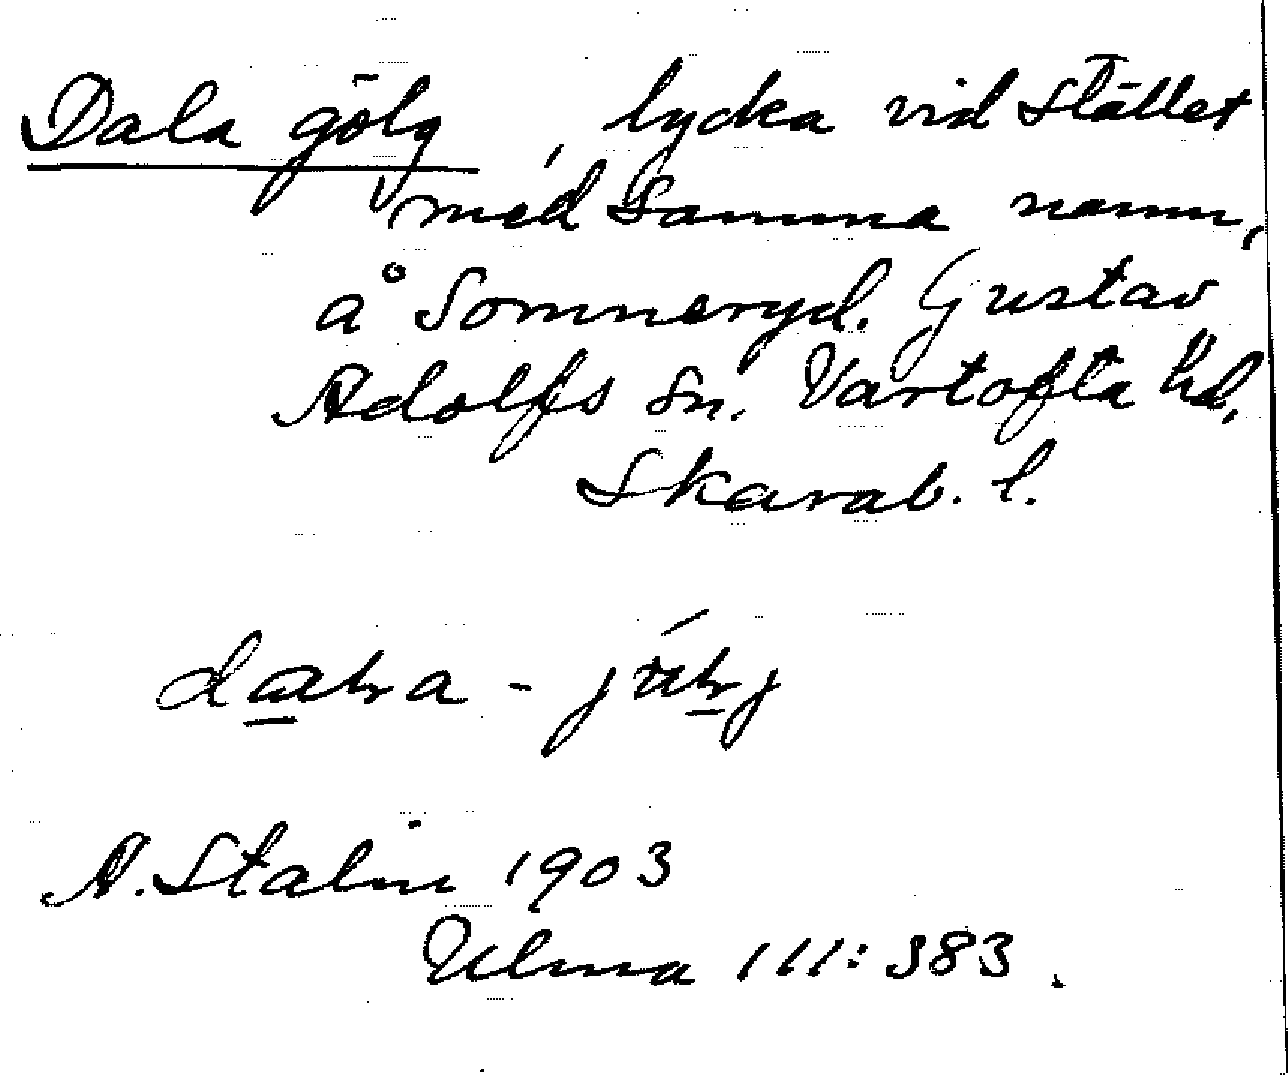 Dala gölg, lycka vid stället
med samma namn,
å Somneryd. Gustav
Adolfs sn. Vartofta hd.
Skarab. l.
A. Stalin 1903
Ulma 111:383.